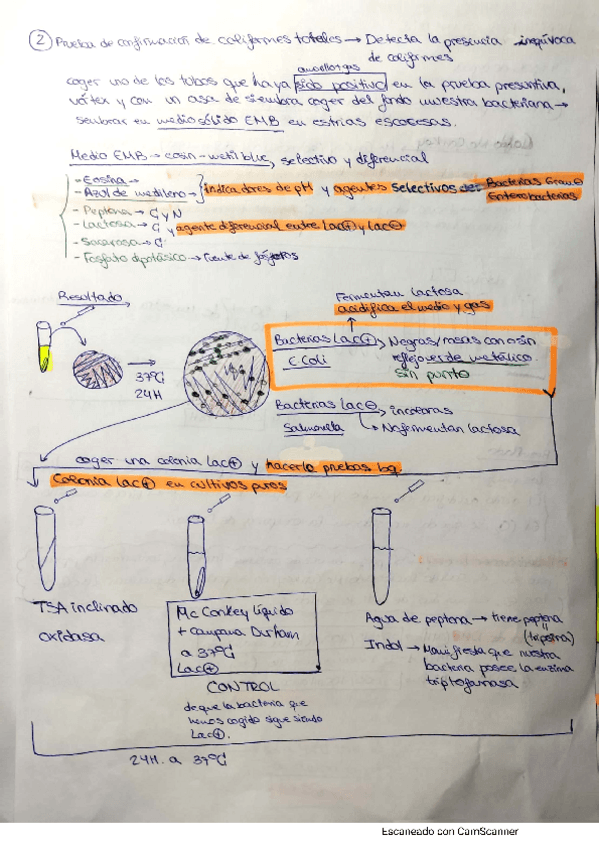 ② Prueba de confirmación de coliformes totales → Detecta la presencia inequívoca
de coliformes
amarillo+gas
coger uno de los tubos que haya sido positivo en la prueba presuntiva,
vórtex y con un asa de siembra coger del fondo muestra bacteriana →
sembrar en medio sólido EMB en estrías escocesas.
Medio EMB → eosin-metil blue, selectivo y diferencial
- Eosina →
- Azul de metileno → indicadores de pH y agentes selectivos de Bacterias Gram ⊖
Enterobacterias
- Peptona → C y N
- Lactosa → C y agente diferencial entre Lac⊕ y Lac⊖
- Sacarosa → C
- Fosfato dipotásico → fuente de fósforos
Resultado
Fermentan lactosa
acidifica el medio y gas
Bacterias Lac⊕ → Negras/rosas con o sin
E. Coli reflejo verde metálico
sin punto
37ºC
24H
Bacterias Lac⊖, incoloras
Salmonella → No fermentan lactosa
coger una colonia Lac⊕ y hacerle pruebas bq.
Colonia Lac⊕ en cultivos puros
TSA inclinado
oxidasa
Mc Conkey líquido
+ campana Durham
a 37ºC
Lac⊕
CONTROL
de que la bacteria que
hemos cogido sigue siendo
Lac⊕.
Agua de peptona → tiene peptona
(tripsina)
Indol → Manifiesta que nuestra
bacteria posee la enzima
triptofanasa
24H. a 37ºC
Escaneado con CamScanner